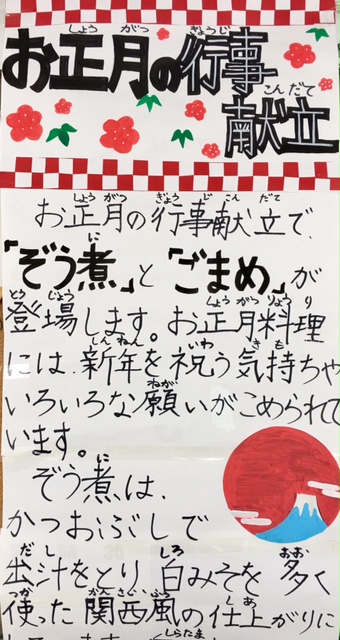 お正月の行事
献立
お正月の行事献立で、
「ぞう煮」と「ごまめ」が
登場します。お正月料理
には、新年を祝う気持ちや
いろいろな願いがこめられて
います。
ぞう煮は、
かつおぶしで
出汁をとり、白みそを多く
使った関西風の仕上がりに